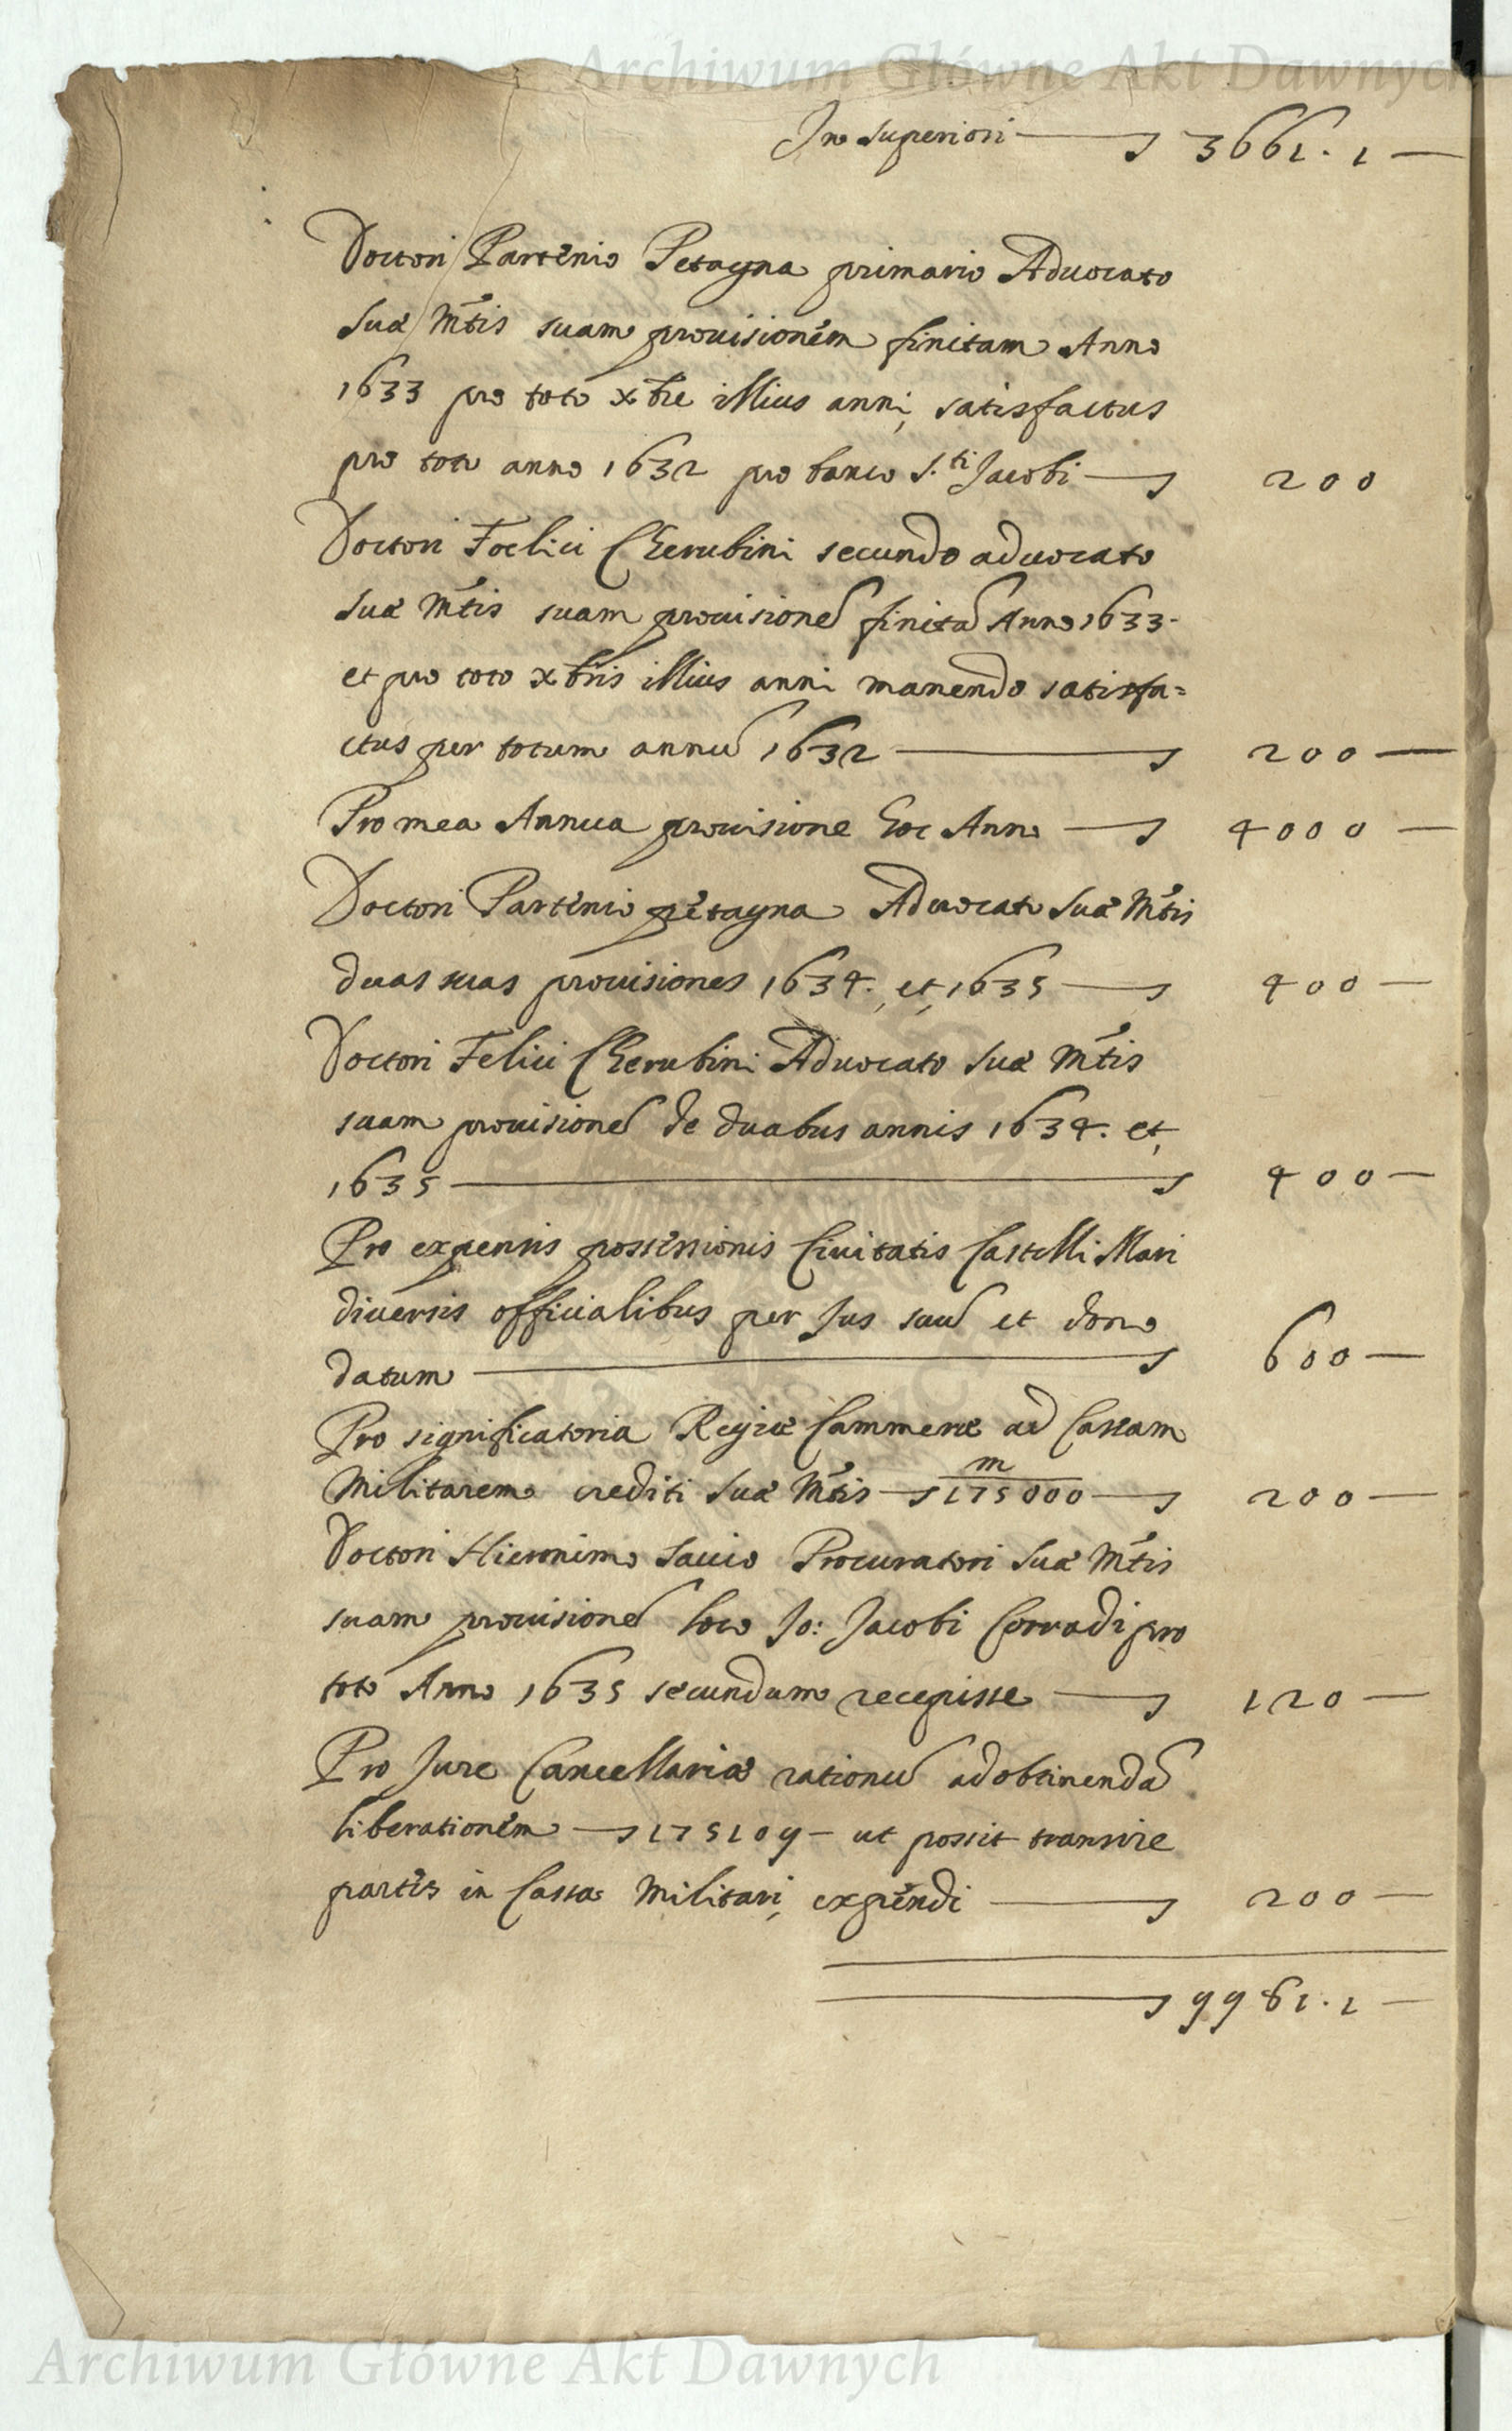 Archiwum Główne Akt Dawnych
In superiori — 3661. 1 —
Doctori Partenio Petagna primario Aduocato
Suæ Mtis suam prouisionem finitam Anno
1633 pro toto xbre illius anni, satisfactus
pro toto anno 1632 pro banco S.ti Jacobi — 200
Doctori Foelici Cherubini secundo aduocato
Suæ Mtis suam prouisione finita Anno 1633.
et pro toto xbris illius anni manendo satisfa=
ctus per totum annu 1632 — 200 —
Pro mea Annua prouisione hoc Anno — 4000 —
Doctori Partenio petagna Aduocato Suæ Mtis
duas suas prouisiones 1634. et, 1635 — 400 —
Doctori Felici Cherubini Aduocato Suæ Mtis
suam prouisione de duabus annis 1634. et,
1635 — 400 —
Pro expensis possessionis Ciuitatis Castelli Mari
diuersis officialibus per Jus suu et dono
datum — 600 —
Pro significatoria Regiæ Cammeræ ad Cassam
m
Militarem crediti Suæ Mtis — 175000 — 200 —
Doctori Hieronimo Saccio Procuratori Suæ Mtis
suam prouisione loco Jo: Jacobi Corradi pro
toto Anno 1635 secundum recepisse — 120 —
Pro Jure Cancellariæ rationu ad obtinenda
liberationem — 175109 — ut possit transire
partes in Cassa Militari, expendi — 200 —
— 9981. 1 —
Archiwum Główne Akt Dawnych